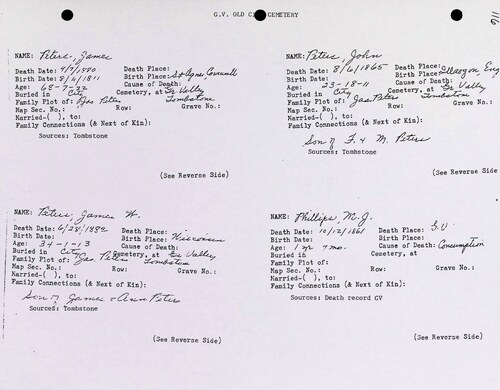 G.V. OLD CEMETERY
NAME: Peters, James
Death Date: 4/7/1880 Death Place:
Birth Date: 8/6/1811 Birth Place: St Agnes, Cornwall
Age: 68-7-22 Cause of Death:
Buried in City Cemetery, at Gr Valley
Family Plot of: Jas Peters Tombstone
Map Sec. No.: Row: Grave No.:
Married-( ), to:
Family Connections (& Next of Kin):
Sources: Tombstone
(See Reverse Side)
NAME: Peters, John
Death Date: 8/6/1865 Death Place:
Birth Date: Birth Place: Eng
Age: 23-18-11 Cause of Death:
Buried in City Cemetery, at Gr Valley
Family Plot of: Jas Peters Tombstone
Map Sec. No.: Row: Grave No.:
Married-( ), to:
Family Connections (& Next of Kin):
Son of F. & M. Peters
Sources: Tombstone
(See Reverse Side)
NAME: Peters, James W.
Death Date: 6/28/1892 Death Place:
Birth Date: Birth Place: Wisconsin
Age: 34-1-13 Cause of Death:
Buried in City Cemetery, at Gr Valley
Family Plot of: Jas Peters Tombstone
Map Sec. No.: Row: Grave No.:
Married-( ), to:
Family Connections (& Next of Kin):
Son of James & Ann Peters
Sources: Tombstone
(See Reverse Side)
NAME: Phillips, M. J.
Death Date: 10/12/1861 Death Place: G.V
Birth Date: Birth Place:
Age: 1 yr 7 mo. Cause of Death: Consumption
Buried in Cemetery, at
Family Plot of:
Map Sec. No.: Row: Grave No.:
Married-( ), to:
Family Connections (& Next of Kin):
Sources: Death record GV
(See Reverse Side)